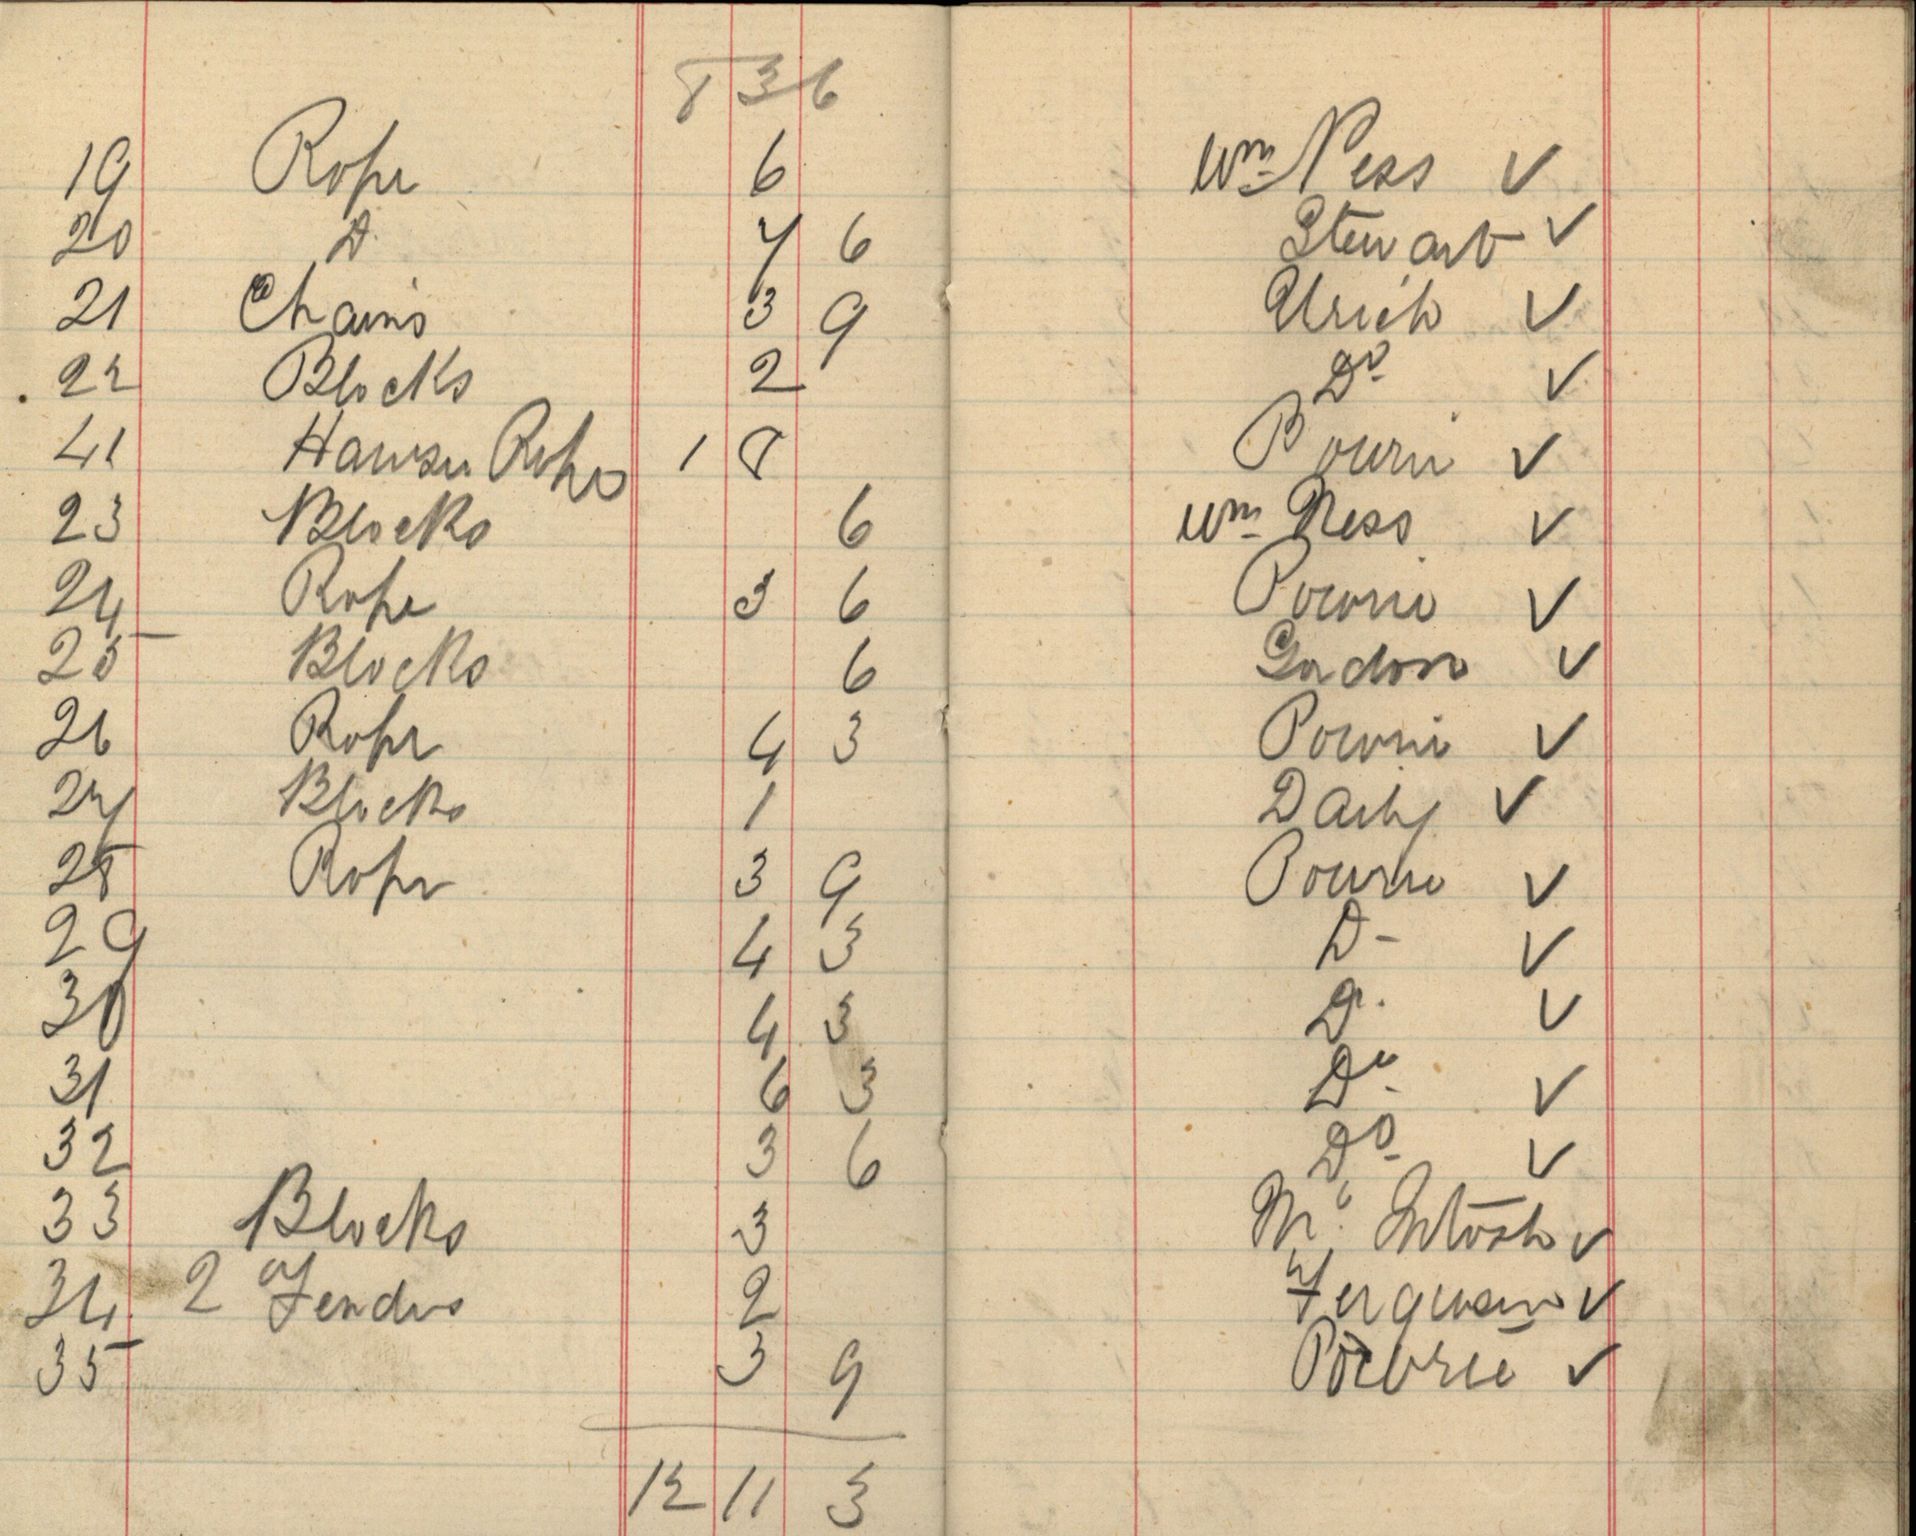 8 3 6
19 Rope 6 Wm Ness ✓
20 Do 7 6 Stewart ✓
21 Chains 3 9 Ulrich ✓
22 Blocks 2 Do ✓
41 Hawser Rope 1 8 Pourie ✓
23 Blocks 6 Wm Ness ✓
24 Rope 3 6 Powrie ✓
25 Blocks 6 Gordon ✓
26 Rope 4 3 Powrie ✓
27 Blocks 1 Daily ✓
28 Rope 3 9 Powrie ✓
29 4 3 Do ✓
30 4 3 Do ✓
31 6 3 Do ✓
32 3 6 Do ✓
33 Blocks 3 Mc Intosh ✓
34 2 Fenders 2 Ferguson ✓
35 3 9 Powrie ✓
12 11 3